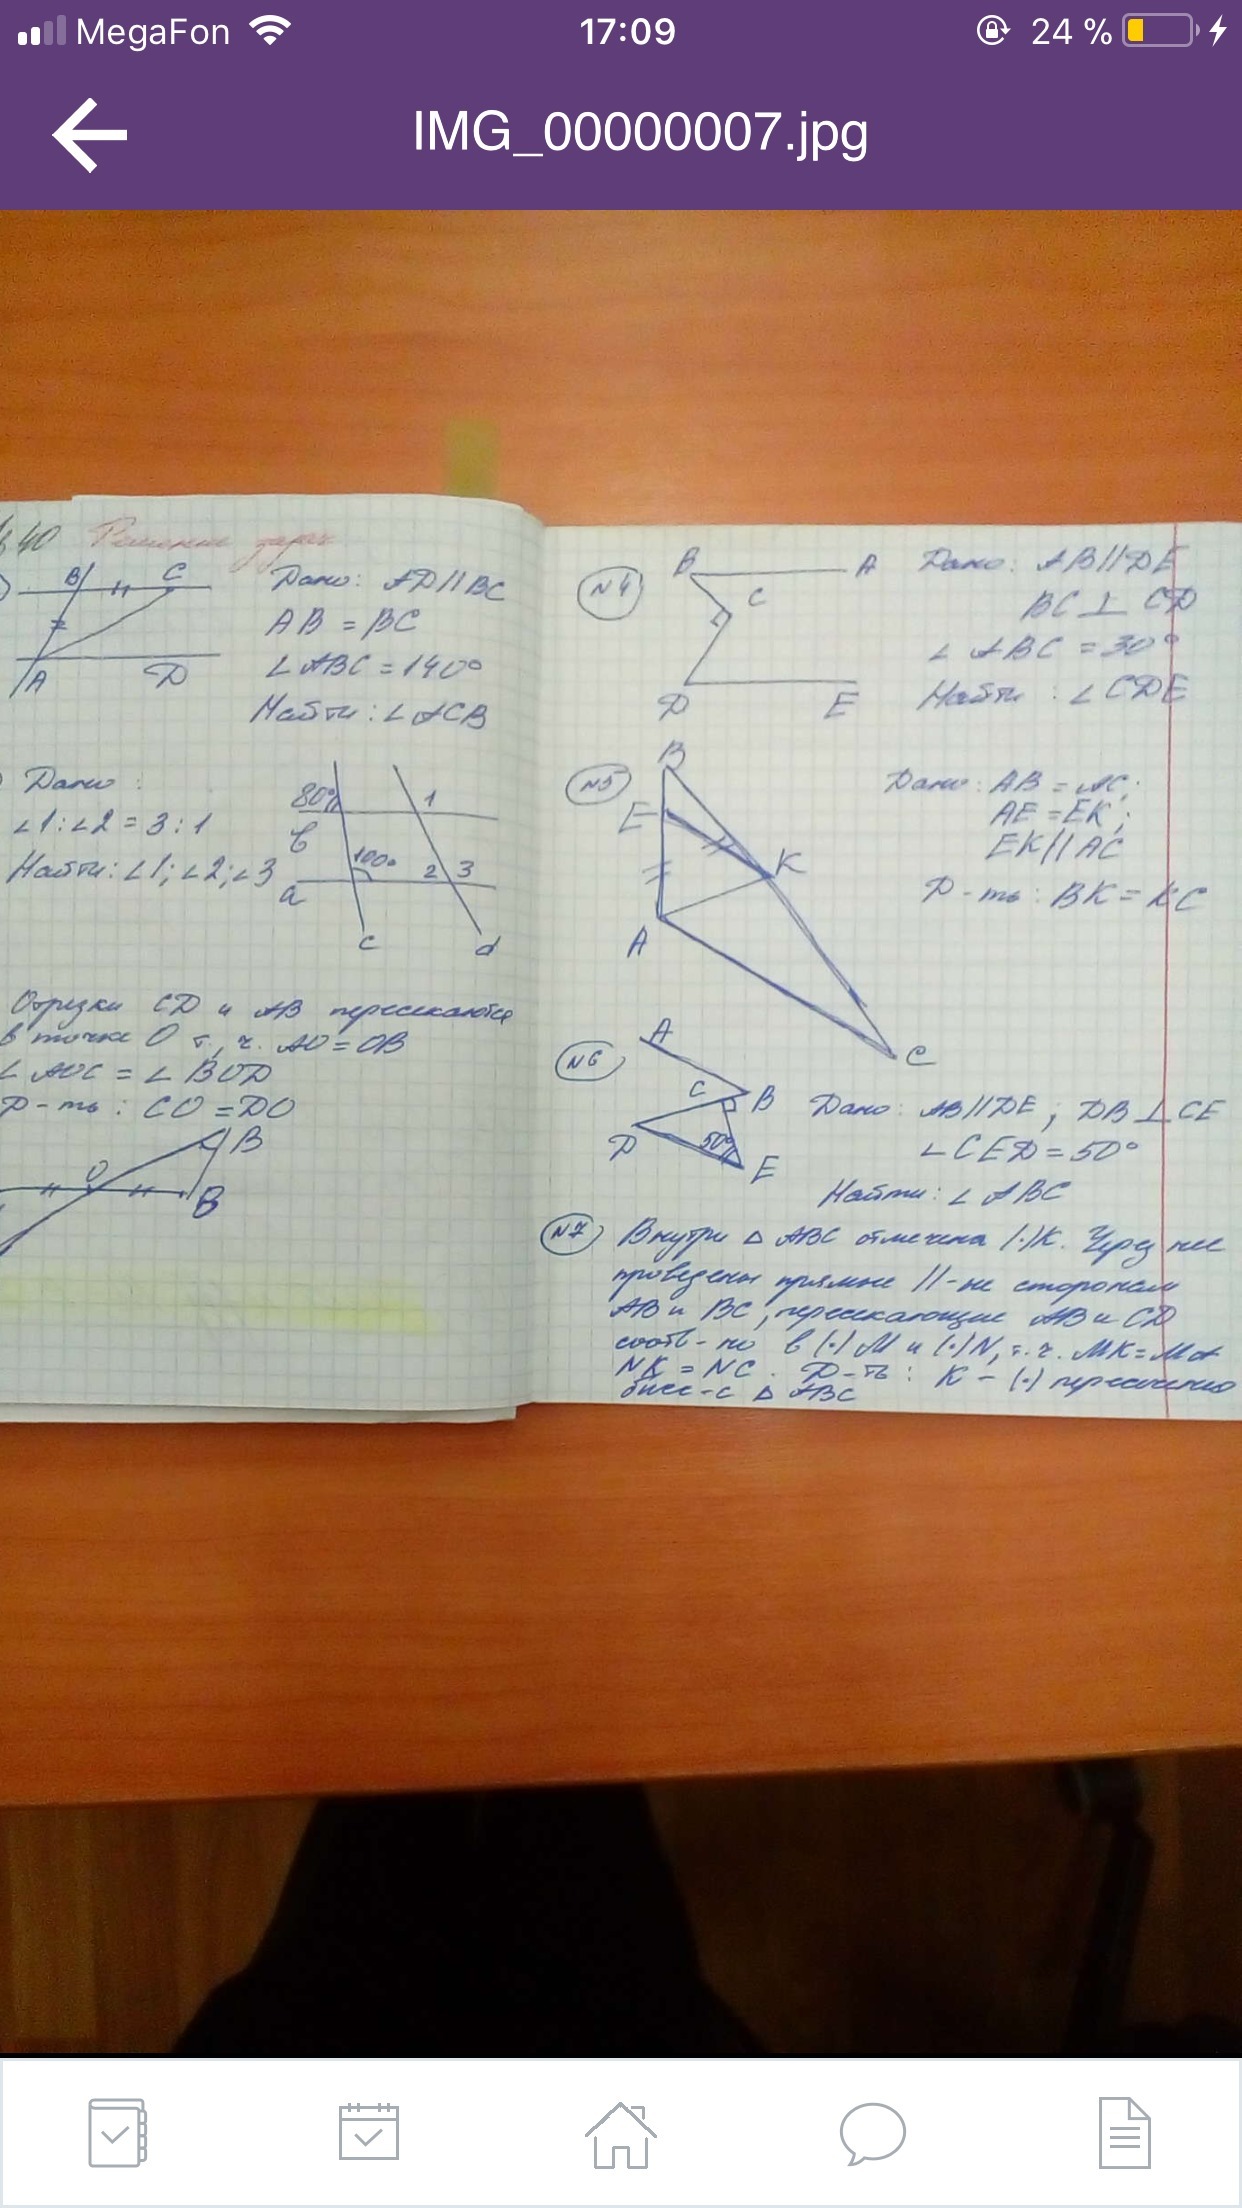 MegaFon 17:09 24 %
IMG_00000007.jpg
40 Решение задач
B C
A D
Дано: AD||BC
AB = BC
∠ABC = 140°
Найти: ∠ACB
Дано:
∠1:∠2 = 3:1
Найти: ∠1; ∠2; ∠3
80° 1
b
100° 2 3
a
c d
Отрезки CD и AB пересекаются
в точке O т. ч. AO = OB
∠AOC = ∠BOD
D-ть: CO = DO
B
O
B
N4
B A
C
D E
Дано: AB||DE
BC ⊥ CD
∠ABC = 30°
Найти: ∠CDE
N5
B
E
K
A
C
Дано: AB = AC;
AE = EK;
EK||AC
D-ть: BK = KC
N6
A
C B
D 50° E
Дано: AB||DE; DB ⊥ CE
∠CED = 50°
Найти: ∠ABC
N7 Внутри △ ABC отмечена (·)K. Через нее
проведены прямые ||-не сторонам
AB и BC, пересекающие AB и CD
соотв-но в (·)M и (·)N, т.ч. MK=MA
NK = NC. D-ть: K - (·) пересечения
бисс-с △ ABC